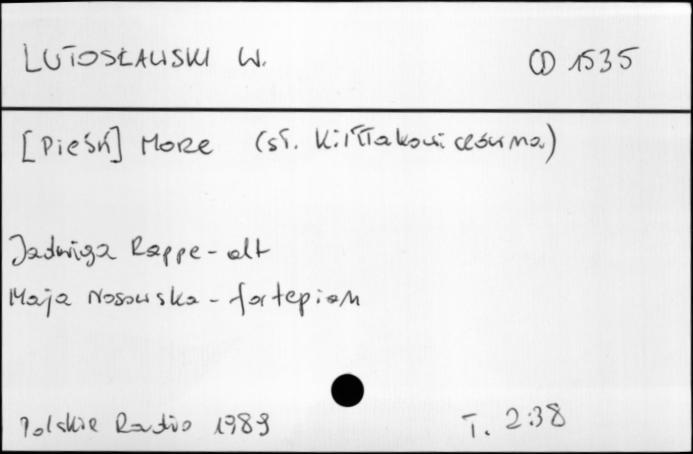 LUTOSŁAWSKI W. CD 1535
[Pieśń] Morze (sł. K. Iłłakowiczówna)
Jadwiga Rappe - alt
Maja Nosowska - fortepian
Polskie Radio 1989 T. 2:38